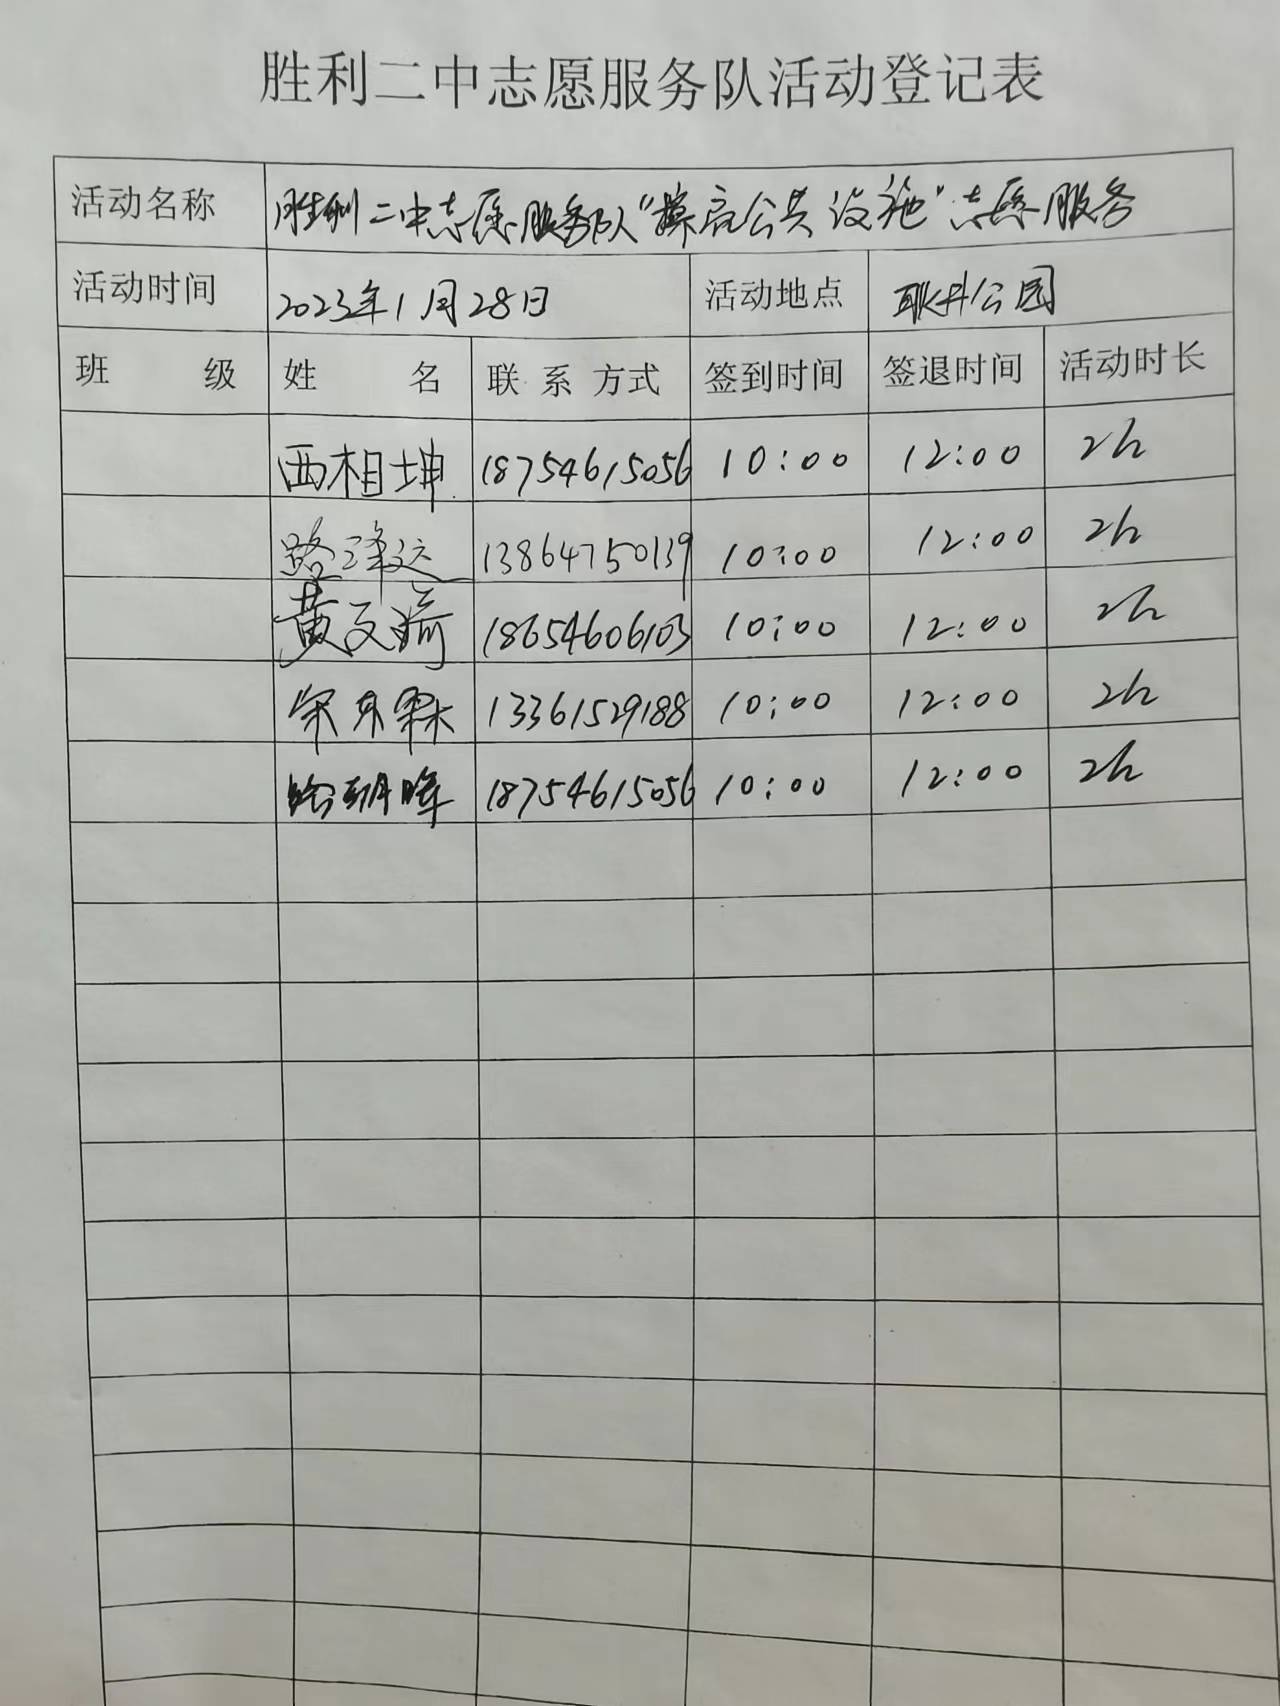 胜利二中志愿服务队活动登记表
活动名称 胜利二中志愿服务队"擦亮公共设施"志愿服务
活动时间 2023年1月28日 活动地点 耿井公园
班 级 姓 名 联系方式 签到时间 签退时间 活动时长
西相坤 18754615056 10:00 12:00 2h
路泽远 13864750139 10:00 12:00 2h
黄文 18654606103 10:00 12:00 2h
宋 13361529188 10:00 12:00 2h
朝晖 18754615056 10:00 12:00 2h